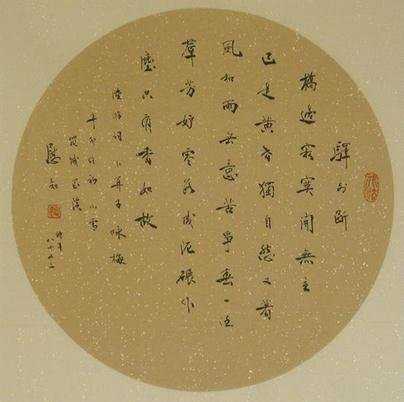 驛外斷
橋邊寂寞開無主
已是黃昏獨自愁又著
風和雨無意苦爭春一任
群芳妒零落成泥碾作
塵只有香如故
陸游詞卜算子咏梅
小雪
時年
八十